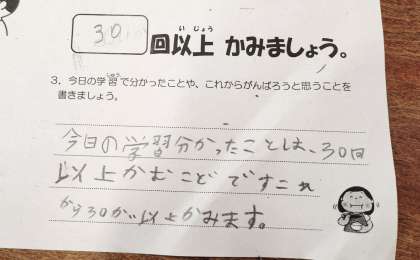 30 回以上 かみましょう。
3. 今日の学習で分かったことや、これからがんばろうと思うことを
書きましょう。
今日の学習分かったことは、30回
以上かむことですこれ
から30かい以上かみます。